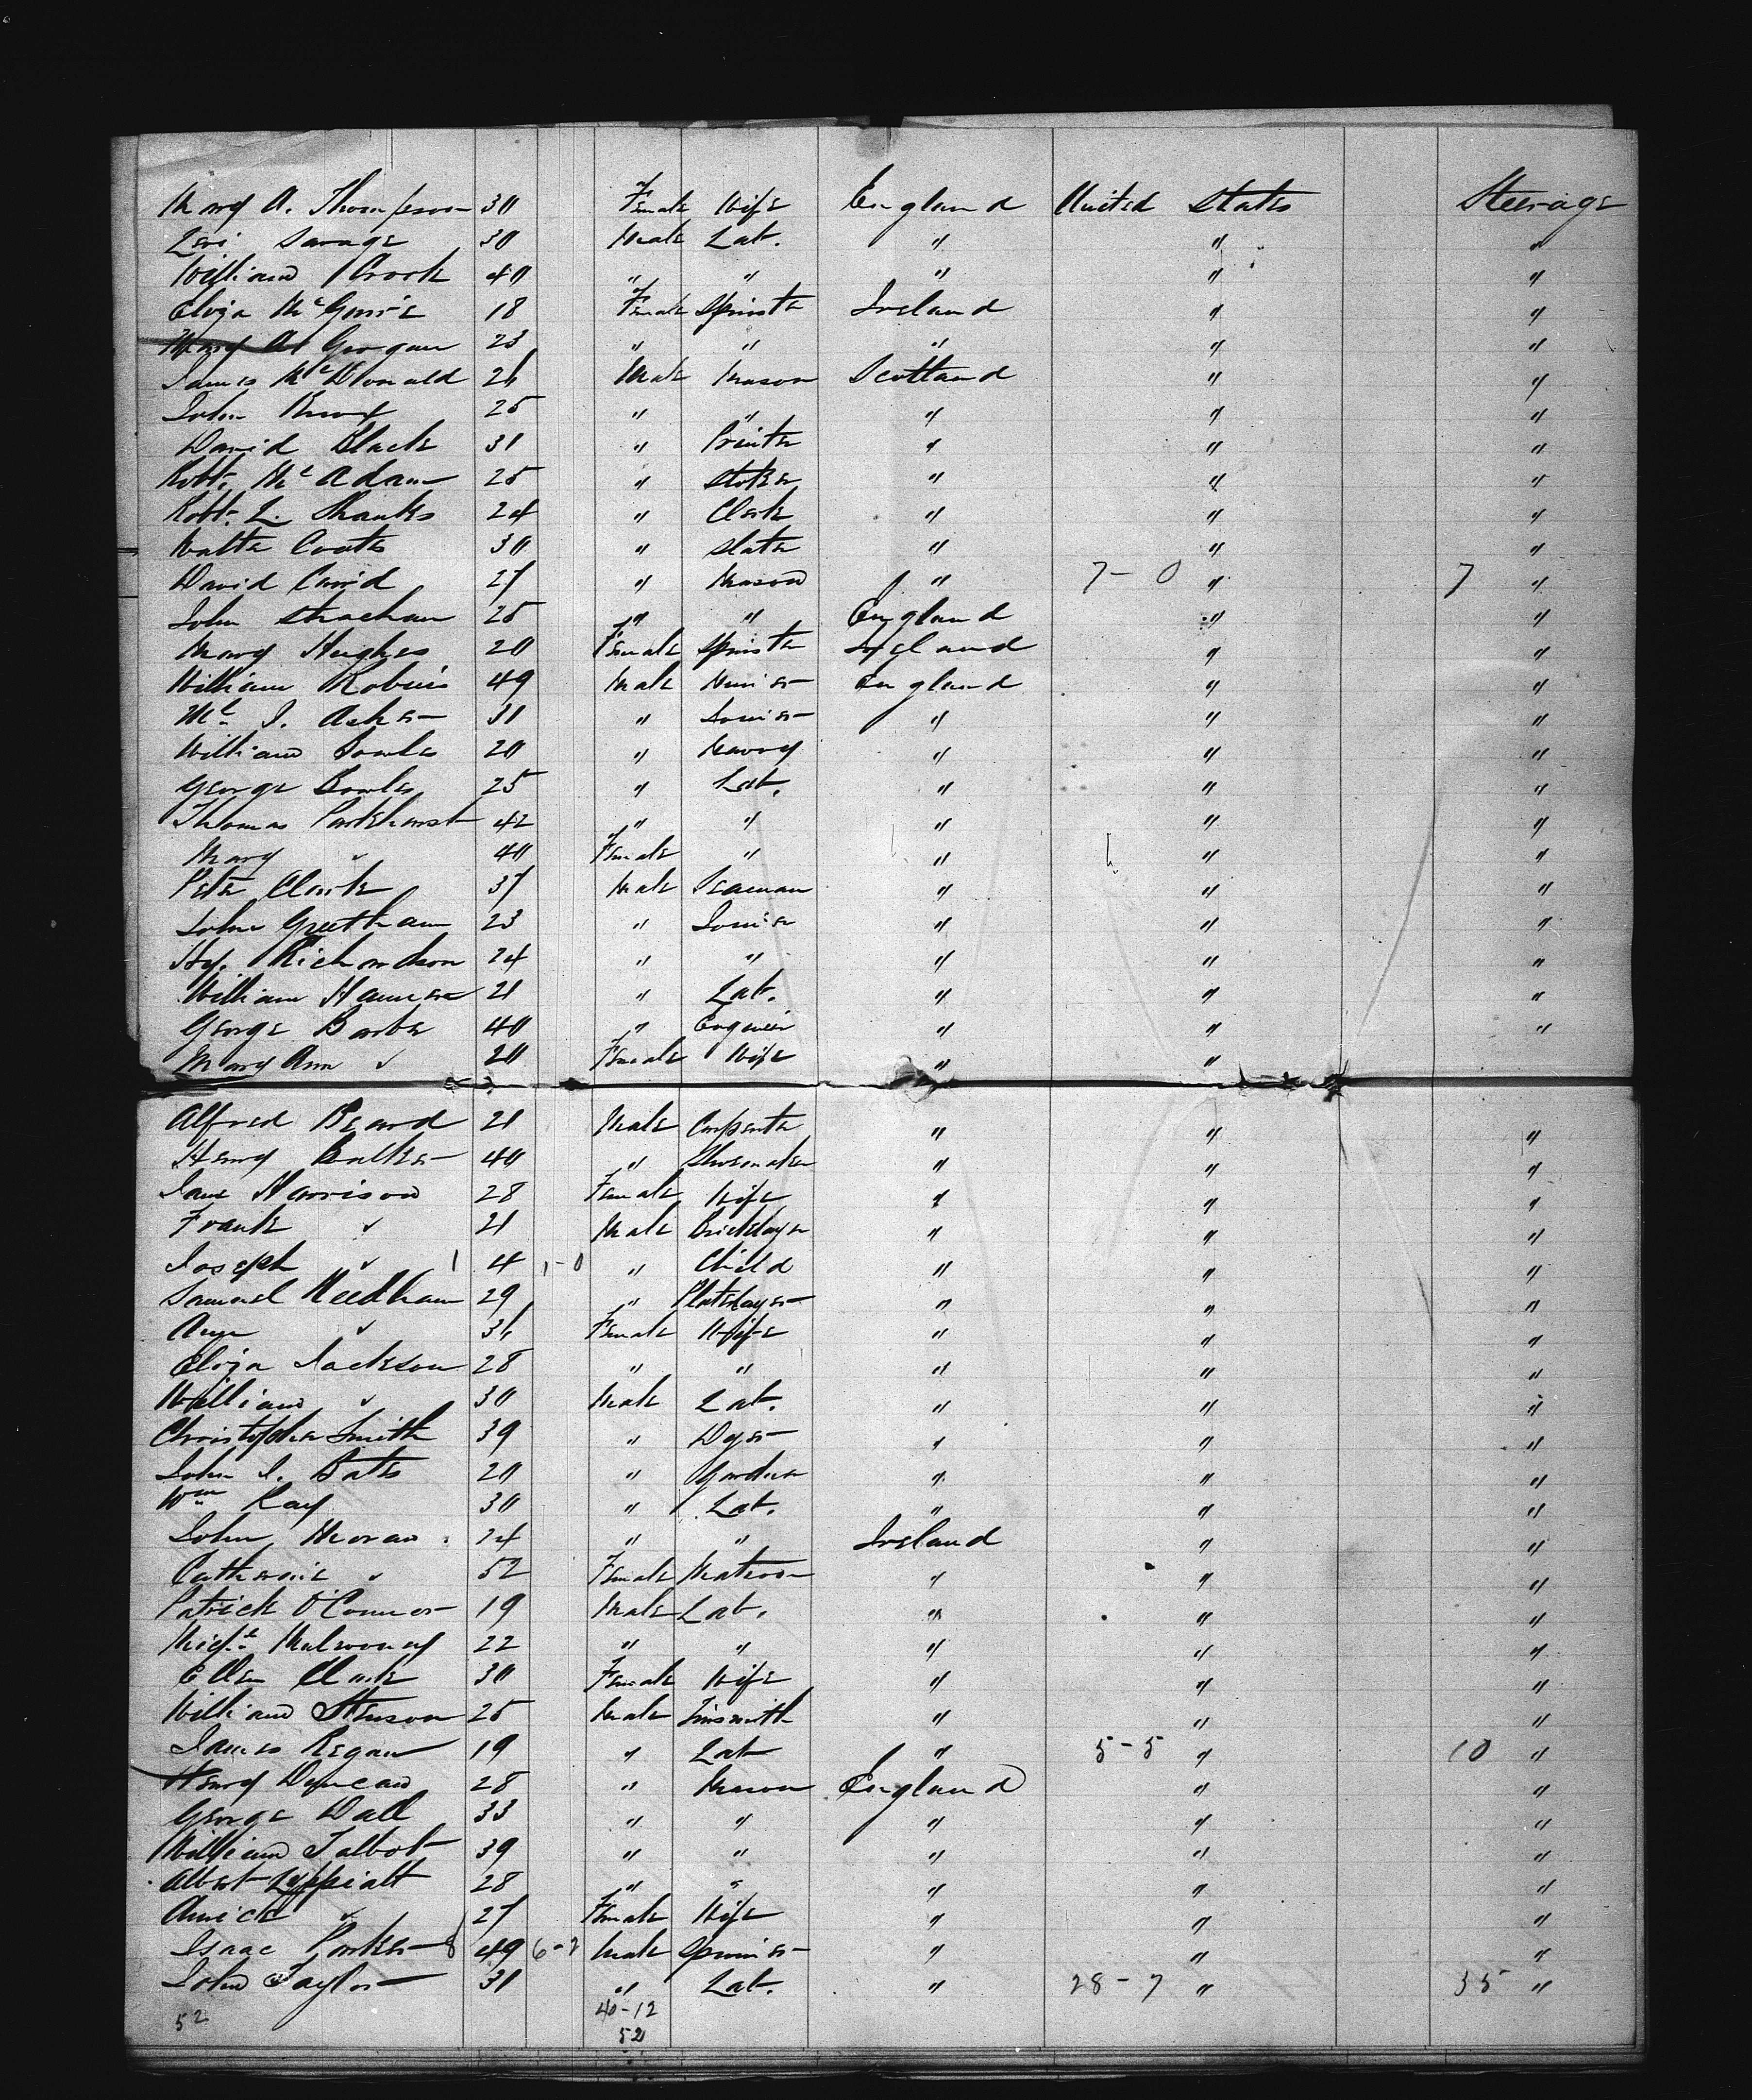 Mary A. Thompson 30 Female Wife England United States Steerage
Levi Savage 30 Male Lab. " " "
William Crook 40 " " " " "
Eliza McGuire 18 Female Spinster Ireland " "
Mary A Grogan 23 " " " " "
James McDonald 26 Male Mason Scotland " "
John King 25 " " " " "
David Black 31 " Printer " " "
Robt. McAdam 25 " Stoker " " "
Robt. L. Shanks 24 " Clerk " " "
Walter Coats 30 " Slater " " "
David Caird 27 " Mason " 7-0 " 7 "
John Strachan 25 " " England " "
Mary Hughes 20 Female Spinster Ireland " "
William Robins 49 Male Miner England " "
J. Asher 31 " Joiner " " "
William Bowles 20 " Navvy " " "
George Bowles 25 " Lab. " " "
Thomas Parkhurst 42 " " " " "
Mary " 40 Female " " " "
Peter Clark 37 Male Seaman " " "
John Greetham 23 " Joiner " " "
Hy. Richardson 24 " " " " "
William Hanner 21 " Lab. " " "
George Barber 40 " Engineer " " "
Mary Ann " 20 Female Wife " "
Alfred Beard 21 Male Carpenter " " "
Henry Butler 40 " Shoemaker " " "
Jane Harrison 28 Female Wife " " "
Frank " 21 Male Bricklayer " " "
Joseph " 1 4 1-0 " Child " " "
Samuel Needham 29 " Platelayer " " "
Ann " 36 Female Wife " " "
Eliza Jackson 28 " " " " "
William " 30 Male Lab. " " "
Christopher Smith 39 " Dyer " " "
John J. Bates 20 " Gardner " " "
Wm Kay 30 " Lab. " " "
John Moran 14 " " Ireland " "
Catherine " 52 Female Matron " " "
Patrick O'Connor 19 Male Lab. " " "
Michl. Mulrooney 22 " " " " "
Ellen Clark 30 Female Wife " " "
William Stenson 25 Male Tinsmith " " "
James Regan 19 " Lab " 5-5 " 10 "
Henry Duncan 28 " Mason England " "
George Wall 33 " " " " "
William Talbot 39 " " " " "
Albert Lyppiatt 28 " " " " "
" 27 Female Wife " " "
Isaac Parker 8 49 6-2 Male Spinner " " "
John Taylor 31 " Lab. " 28-7 " 35 "
52 40-12
52